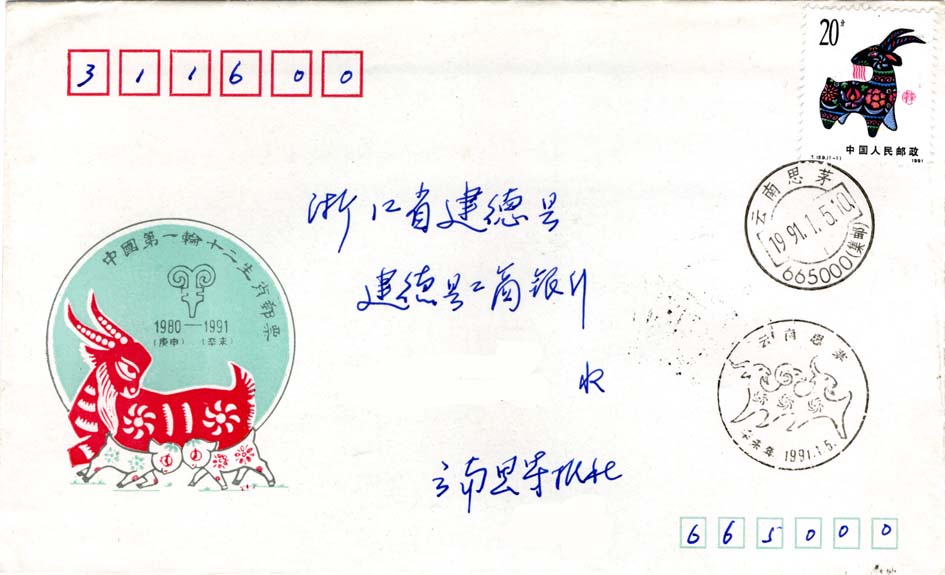 311600
20分
中国人民邮政
T.159.(1-1)
1991
云南思茅
1991.1.5.10
665000(集邮)
浙江省建德县
建德县工商银行
收
中國第一輪十二生肖郵票
1980—1991
(庚申) (辛未)
云南思茅
辛未年 1991.1.5.
云南思茅报社
665000